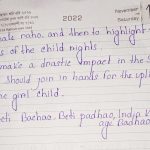 2022
November
Saturday
1
ate raho. and then to highlight
s of the child rights.
make a drastic impact in the S
Should join in hands for the upl
e girl child.
eti Bachao. Beti padhao, India k
age Badhao